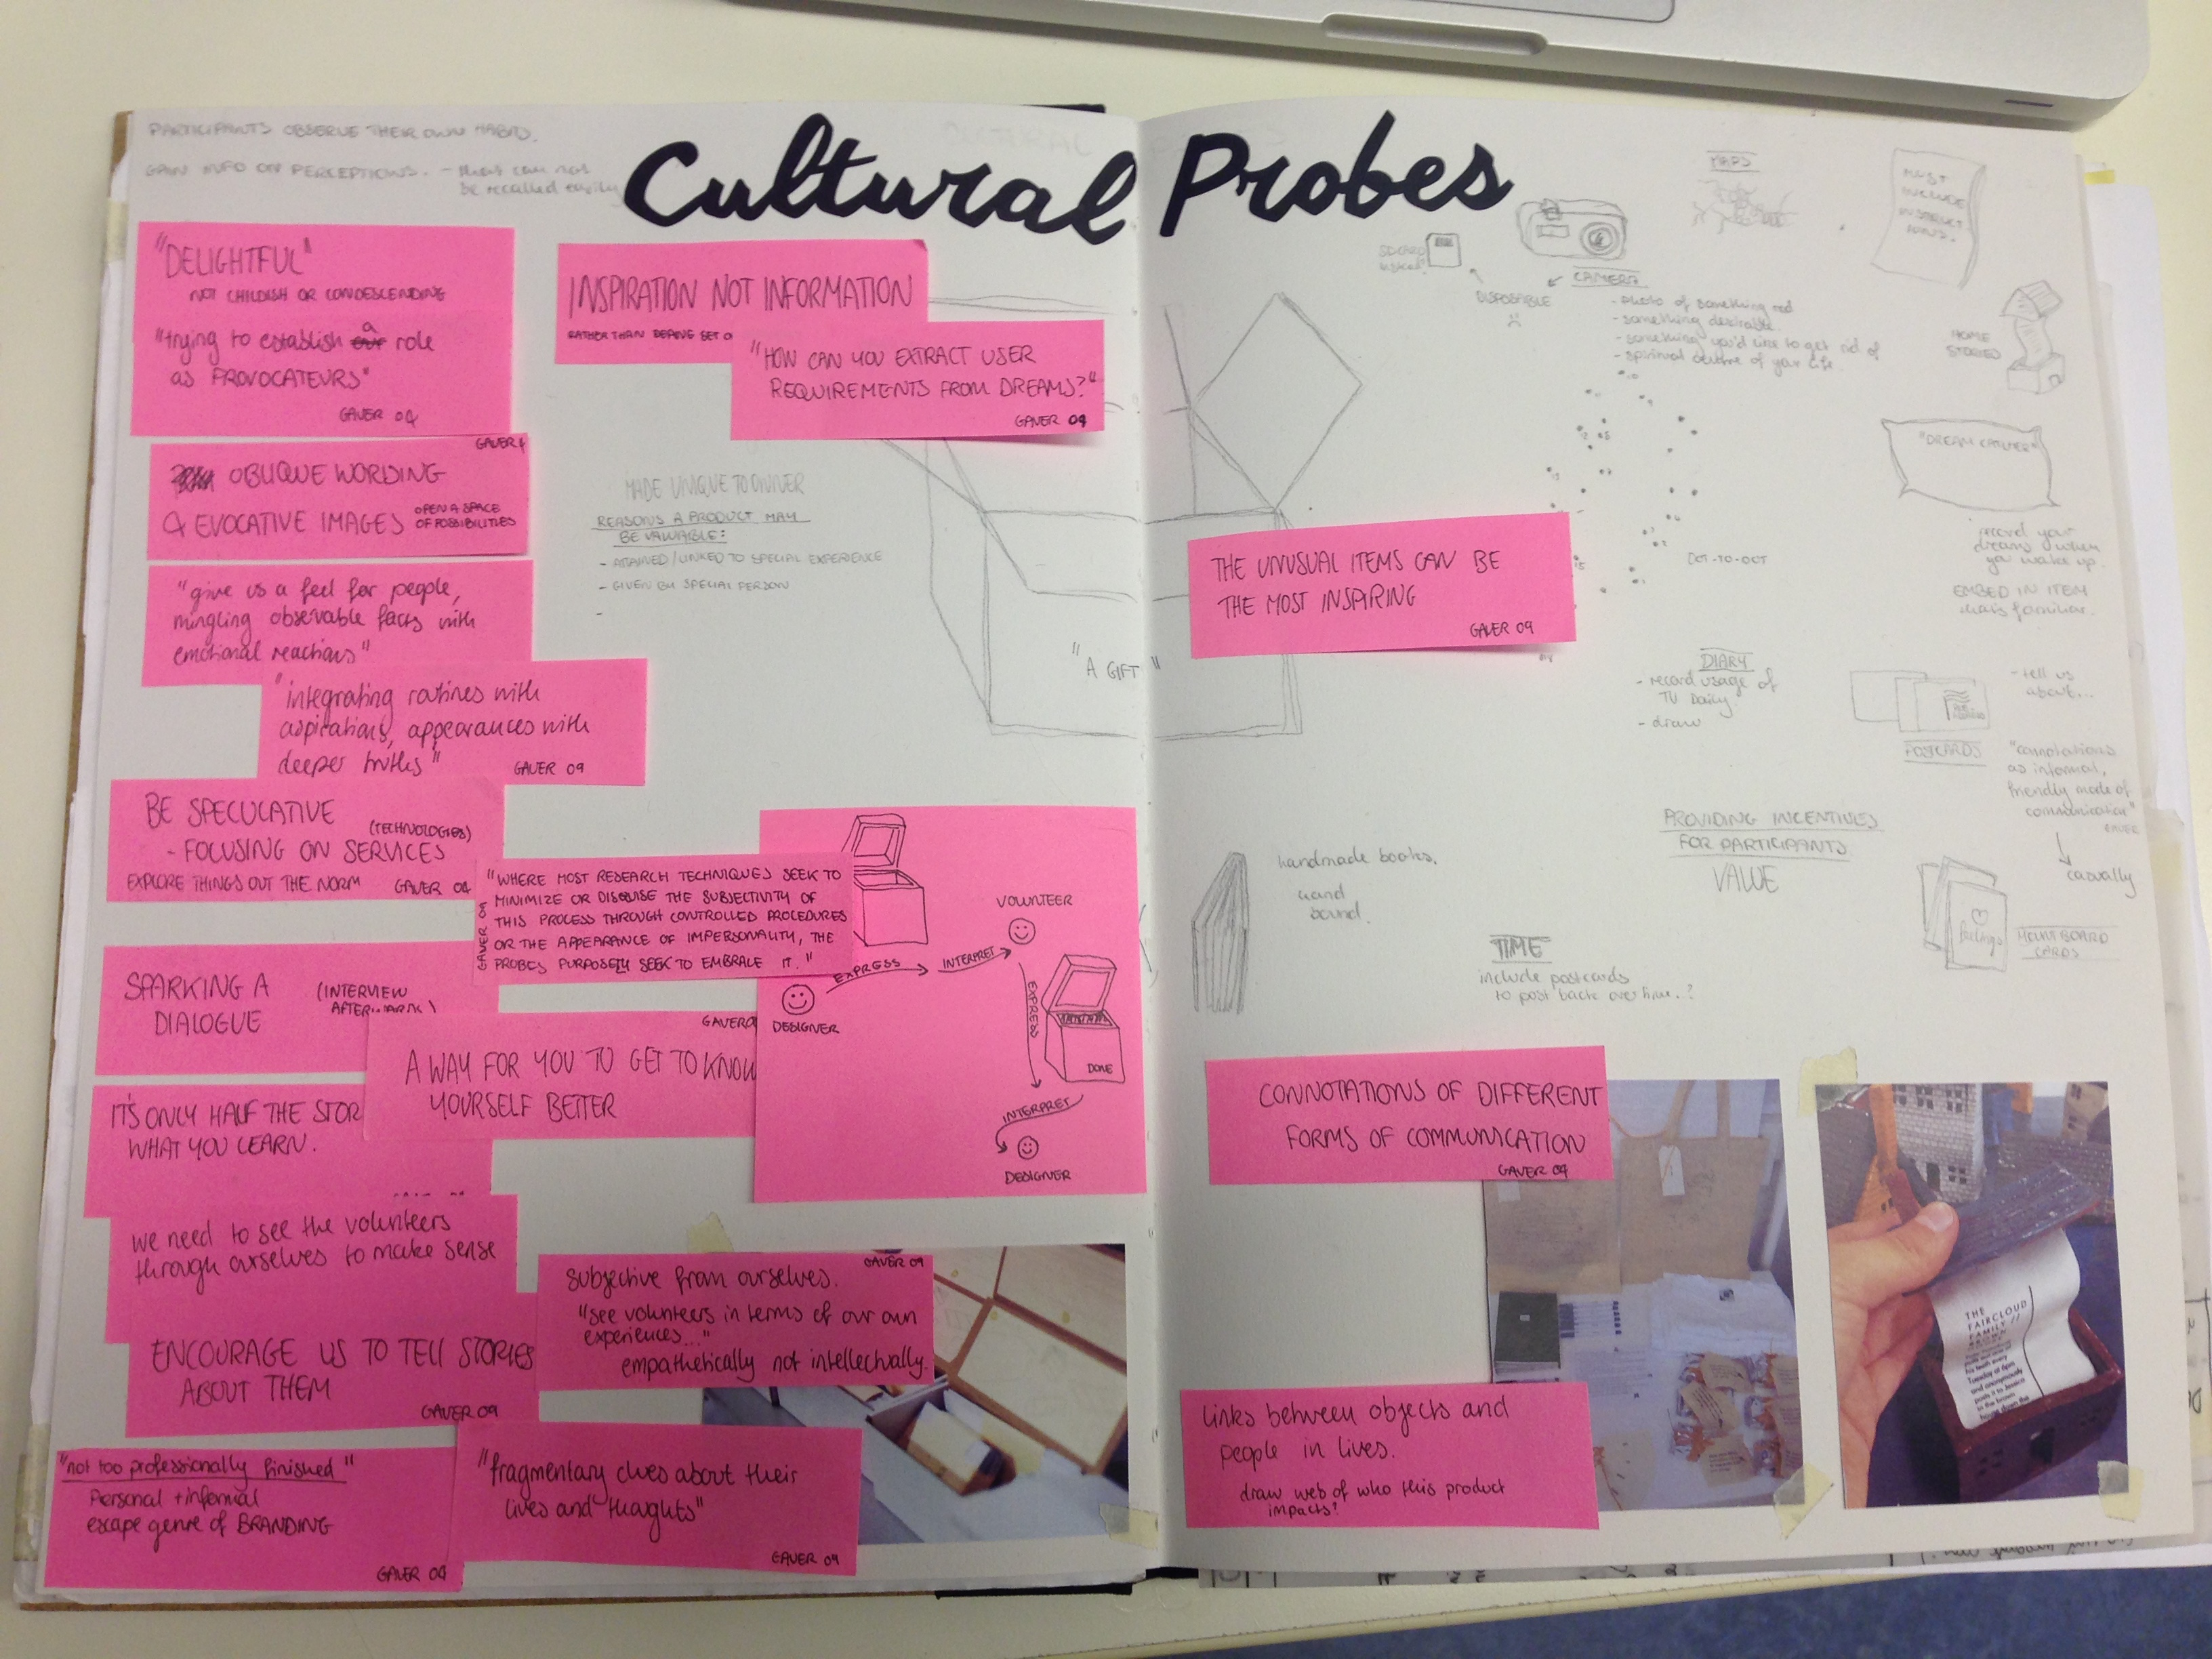 PARTICIPANTS OBSERVE THEIR OWN HABITS.
GAIN INFO ON PERCEPTIONS. - that can not
be recalled easily
Cultural Probes
"DELIGHTFUL"
NOT CHILDISH OR CONDESCENDING
"trying to establish a role
as PROVOCATEURS"
GAVER 09
GAVER
OBLIQUE WORDING
& EVOCATIVE IMAGES
OPEN A SPACE
OF POSSIBILITIES
"give us a feel for people,
mingling observable facts with
emotional reactions"
"integrating routines with
aspirations, appearances with
deeper truths"
GAVER 09
BE SPECULATIVE
(TECHNOLOGIES)
- FOCUSING ON SERVICES
EXPLORE THINGS OUT THE NORM
GAVER 09
SPARKING A
DIALOGUE
(INTERVIEW
AFTERWARDS)
IT'S ONLY HALF THE STOR
WHAT YOU LEARN.
we need to see the volunteers
through ourselves to make sense
ENCOURAGE US TO TELL STORIES
ABOUT THEM
GAVER 09
"not too professionally finished"
Personal + informal
escape genre of BRANDING
GAVER 09
INSPIRATION NOT INFORMATION
RATHER THAN SET O
"HOW CAN YOU EXTRACT USER
REQUIREMENTS FROM DREAMS?"
GAVER 09
MADE UNIQUE TO OWNER
REASONS A PRODUCT MAY
BE VALUABLE:
- ATTAINED/LINKED TO SPECIAL EXPERIENCE
- GIVEN BY SPECIAL PERSON
-
"A GIFT"
"WHERE MOST RESEARCH TECHNIQUES SEEK TO
MINIMIZE OR DISGUISE THE SUBJECTIVITY OF
THIS PROCESS THROUGH CONTROLLED PROCEDURES
OR THE APPEARANCE OF IMPERSONALITY, THE
PROBES PURPOSELY SEEK TO EMBRACE IT."
GAVER 09
GAVER
A WAY FOR YOU TO GET TO KNOW
YOURSELF BETTER
VOLUNTEER
EXPRESS
INTERPRET
DESIGNER
EXPRESS
DONE
INTERPRET
DESIGNER
GAVER 09
Subjective from ourselves.
"see volunteers in terms of our own
experiences..."
empathetically not intellectually.
"fragmentary clues about their
lives and thoughts"
GAVER 09
MAPS
MUST
INCLUDE
INSTRUCT
IONS.
SD CARD
DISPOSABLE
CAMERA
- photo of something red
- something desirable.
- something you'd like to get rid of
- spiritual centre of your life.
HOME
STORIES
"DREAM CATCHER"
record your
dreams when
you wake up.
EMBED IN ITEM
thats familiar.
DOT-TO-DOT
THE UNUSUAL ITEMS CAN BE
THE MOST INSPIRING
GAVER 09
DIARY
- record usage of
TV Daily.
- draw
- tell us
about...
POSTCARDS
"connotations
as informal,
friendly mode of
communication"
GAVER
casually
PROVIDING INCENTIVES
FOR PARTICIPANTS
VALUE
handmade books.
hand
bound.
TIME
include postcards
to post back over time..?
feelings
MOUNTBOARD
CARDS
CONNOTATIONS OF DIFFERENT
FORMS OF COMMUNICATION
GAVER 09
Links between objects and
people in lives.
draw web of who this product
impacts?
THE
FAIRCLOUD
FAMILY //
BROWN
his teeth every
Tuesday at 6pm
and anonymously
posts it to Jessica
in the brown
house down the